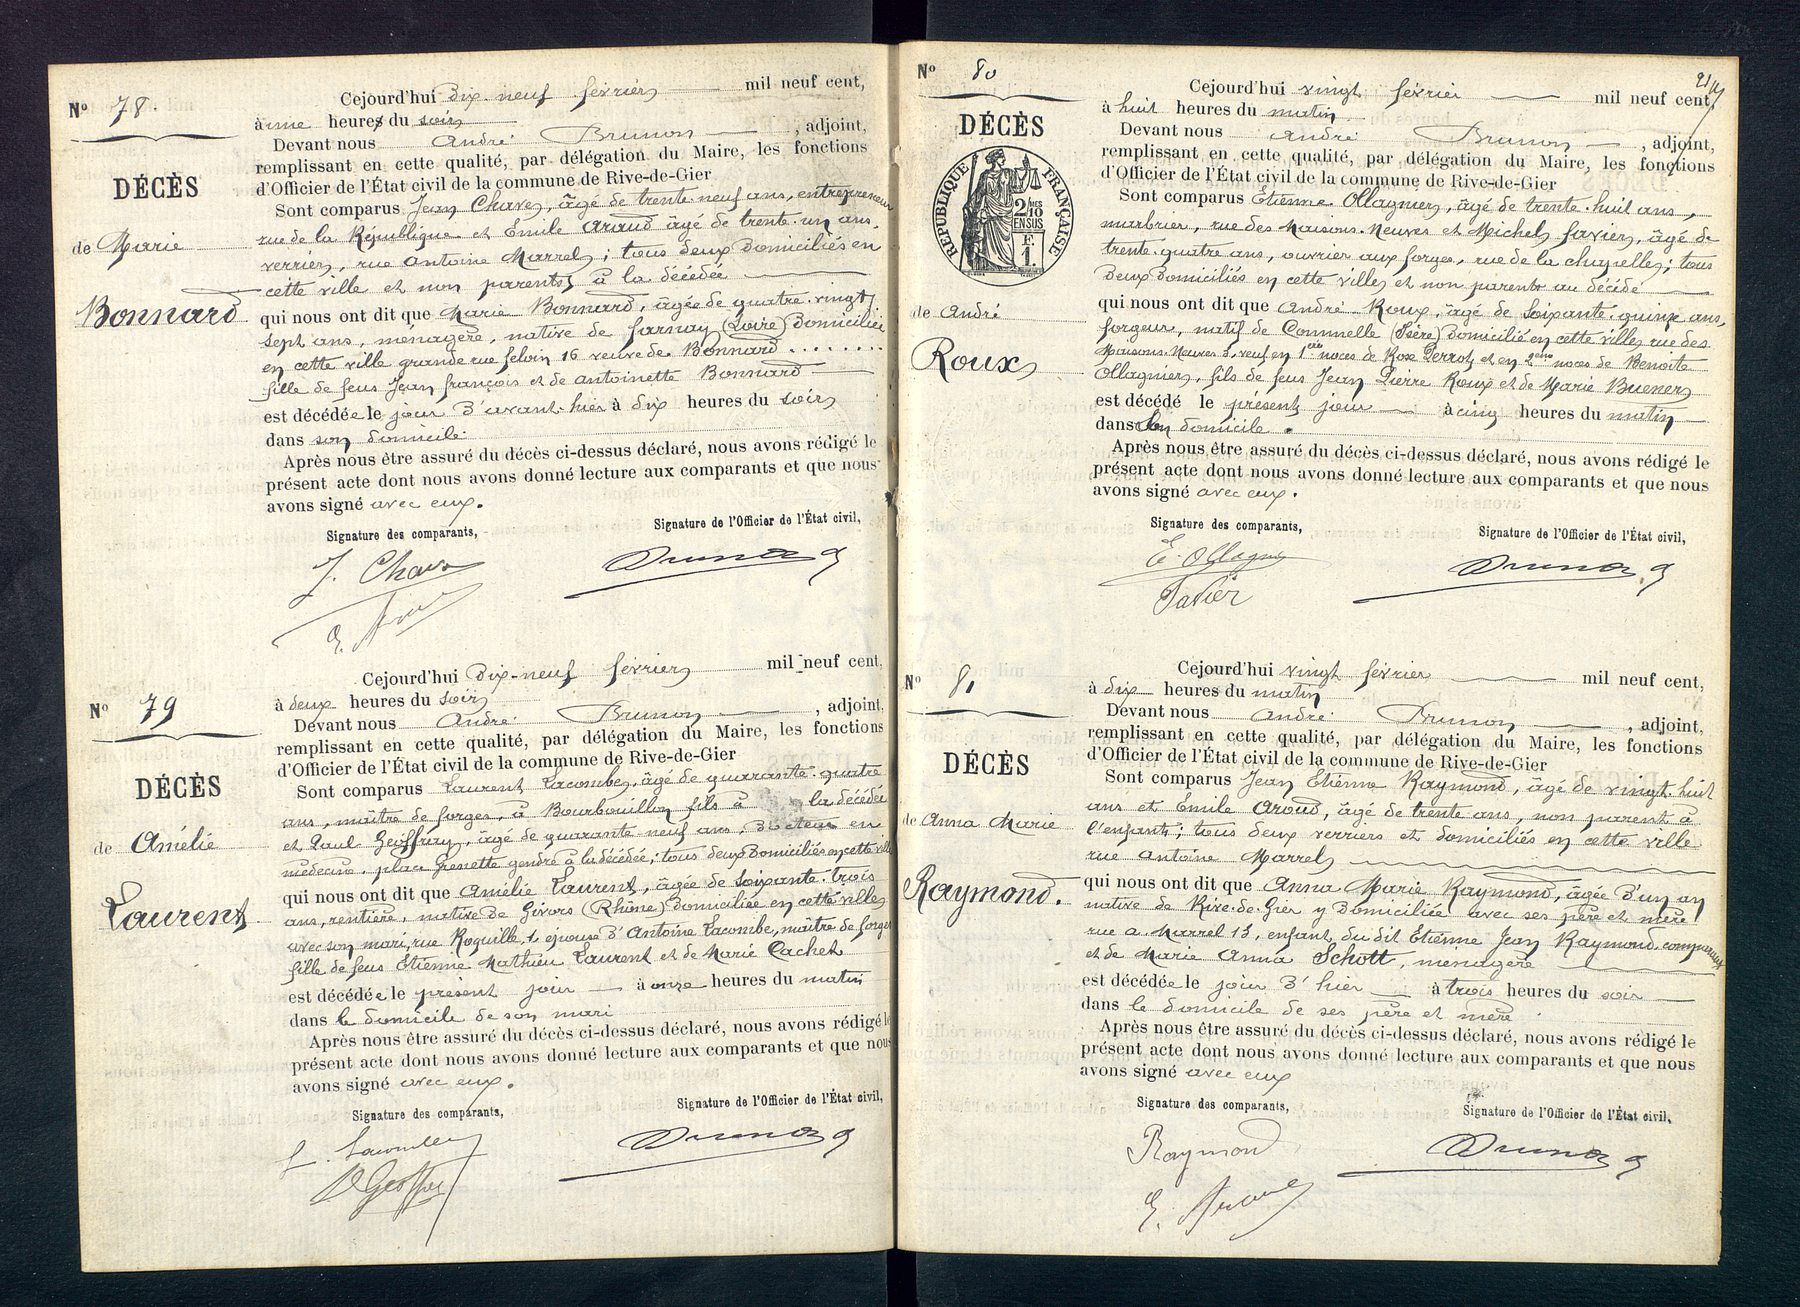 Nº 78.
DÉCÈS
de Marie
Bonnard
Cejourd'hui Dix-neuf février mil neuf cent,
à une heure du soir
Devant nous André Brunon, adjoint,
remplissant en cette qualité, par délégation du Maire, les fonctions
d'Officier de l'État civil de la commune de Rive-de-Gier
Sont comparus Jean Chavey, âgé de trente-neuf ans, entrepreneur
rue de la République et Emile Araud âgé de trente un ans
verrier, rue Antoine Marrel; tous deux domiciliés en
cette ville et non parents à la décédée
qui nous ont dit que Marie Bonnard, âgée de quatre-vingt
sept ans, ménagère, native de farnay (Loire) Domiciliée
en cette ville grande rue feloin 16 veuve de Bonnard ........
fille de feus Jean françois et de antoinette Bonnard
est décédée le jour d'avant-hier à dix heures du soir
dans son domicile
Après nous être assuré du décès ci-dessus déclaré, nous avons rédigé le
présent acte dont nous avons donné lecture aux comparants et que nous
avons signé avec eux.
Signature des comparants, Signature de l'Officier de l'État civil,
J. Chave Brunon
Nº 79
DÉCÈS
de Amélie
Laurent
Cejourd'hui Dix-neuf février mil neuf cent,
à deux heures du soir
Devant nous André Brunon, adjoint,
remplissant en cette qualité, par délégation du Maire, les fonctions
d'Officier de l'État civil de la commune de Rive-de-Gier
Sont comparus Laurent Lacombe, âgé de quarante-quatre
ans, maître de forges, à Bourbouillon fils à la décédée
et Paul Geoffray, âgé de quarante neuf ans, Docteur en
médecine, place Grenette gendre à la décédée; tous deux Domiciliés en cette ville
qui nous ont dit que Amélie Laurent, âgée de soixante-trois
ans, rentière, native de Givors (Rhône) Domiciliée en cette ville
avec son mari, rue Roquille, 1, épouse d'Antoine Lacombe, maître de forges
fille de feus Etienne Mathieu Laurent et de Marie Cachet
est décédée le présent jour à onze heures du matin
dans le domicile de son mari
Après nous être assuré du décès ci-dessus déclaré, nous avons rédigé le
présent acte dont nous avons donné lecture aux comparants et que nous
avons signé avec eux.
Signature des comparants, Signature de l'Officier de l'État civil,
L. Lacombe Brunon
Nº 80
DÉCÈS
RÉPUBLIQUE FRANÇAISE
2/10 EN SUS
F. 1.
de André
Roux
Cejourd'hui vingt février mil neuf cent
à huit heures du matin
Devant nous André Brunon, adjoint,
remplissant en cette qualité, par délégation du Maire, les fonctions
d'Officier de l'État civil de la commune de Rive-de-Gier
Sont comparus Etienne Ollagnier, âgé de trente-huit ans,
marbrier, rue des Maisons-Neuves et Michel favier, âgé de
trente-quatre ans, ouvrier aux forges, rue de la chapelle; tous
deux Domiciliés en cette ville et non parents au décédé
qui nous ont dit que André Roux, âgé de Soixante-quinze ans,
forgeur, natif de Commelle (Isère) Domicilié en cette ville, rue des
Maisons-Neuves 3, veuf en 1ères noces de Rose Perrot et en 2èmes noces de Benoite
Ollagnier, fils de feus Jean Pierre Roux et de Marie Buener
est décédé le présent jour à cinq heures du matin
dans son domicile.
Après nous être assuré du décès ci-dessus déclaré, nous avons rédigé le
présent acte dont nous avons donné lecture aux comparants et que nous
avons signé avec eux.
Signature des comparants, Signature de l'Officier de l'État civil,
E. Ollagnier Brunon
Favier
Nº 81
DÉCÈS
de Anna Marie
Raymond.
Cejourd'hui vingt février mil neuf cent,
à dix heures du matin
Devant nous André Brunon, adjoint,
remplissant en cette qualité, par délégation du Maire, les fonctions
d'Officier de l'État civil de la commune de Rive-de-Gier
Sont comparus Jean Etienne Raymond, âgé de vingt-huit
ans et Emile Aroud, âgé de trente ans, non parent à
l'enfant; tous deux verriers et domiciliés en cette ville
rue Antoine Marrel
qui nous ont dit que Anna Marie Raymond, âgée d'un an
native de Rive-de-Gier y Domiciliée avec ses père et mère
rue a. Marrel 13, enfant du dit Etienne Jean Raymond comparant
et de Marie Anna Schott, ménagère
est décédée le jour d'hier à trois heures du soir
dans le domicile de ses père et mère
Après nous être assuré du décès ci-dessus déclaré, nous avons rédigé le
présent acte dont nous avons donné lecture aux comparants et que nous
avons signé avec eux
Signature des comparants, Signature de l'Officier de l'État civil,
Raymond Brunon